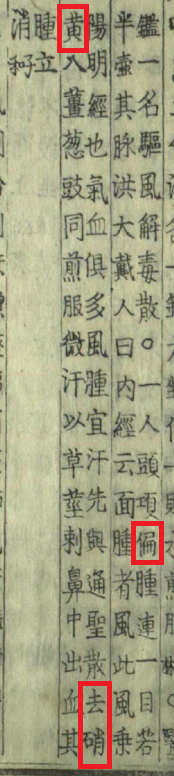 鑑一名驅風解毒散○一人頭項偏腫連一目若
半壺其脉洪大戴人曰内經云面腫者風此風乗
陽明經也氣血俱多風腫宜汗先與通聖散去硝
黄入薑葱豉同煎服微汗以草莖刺鼻中出血其
腫立
消子和